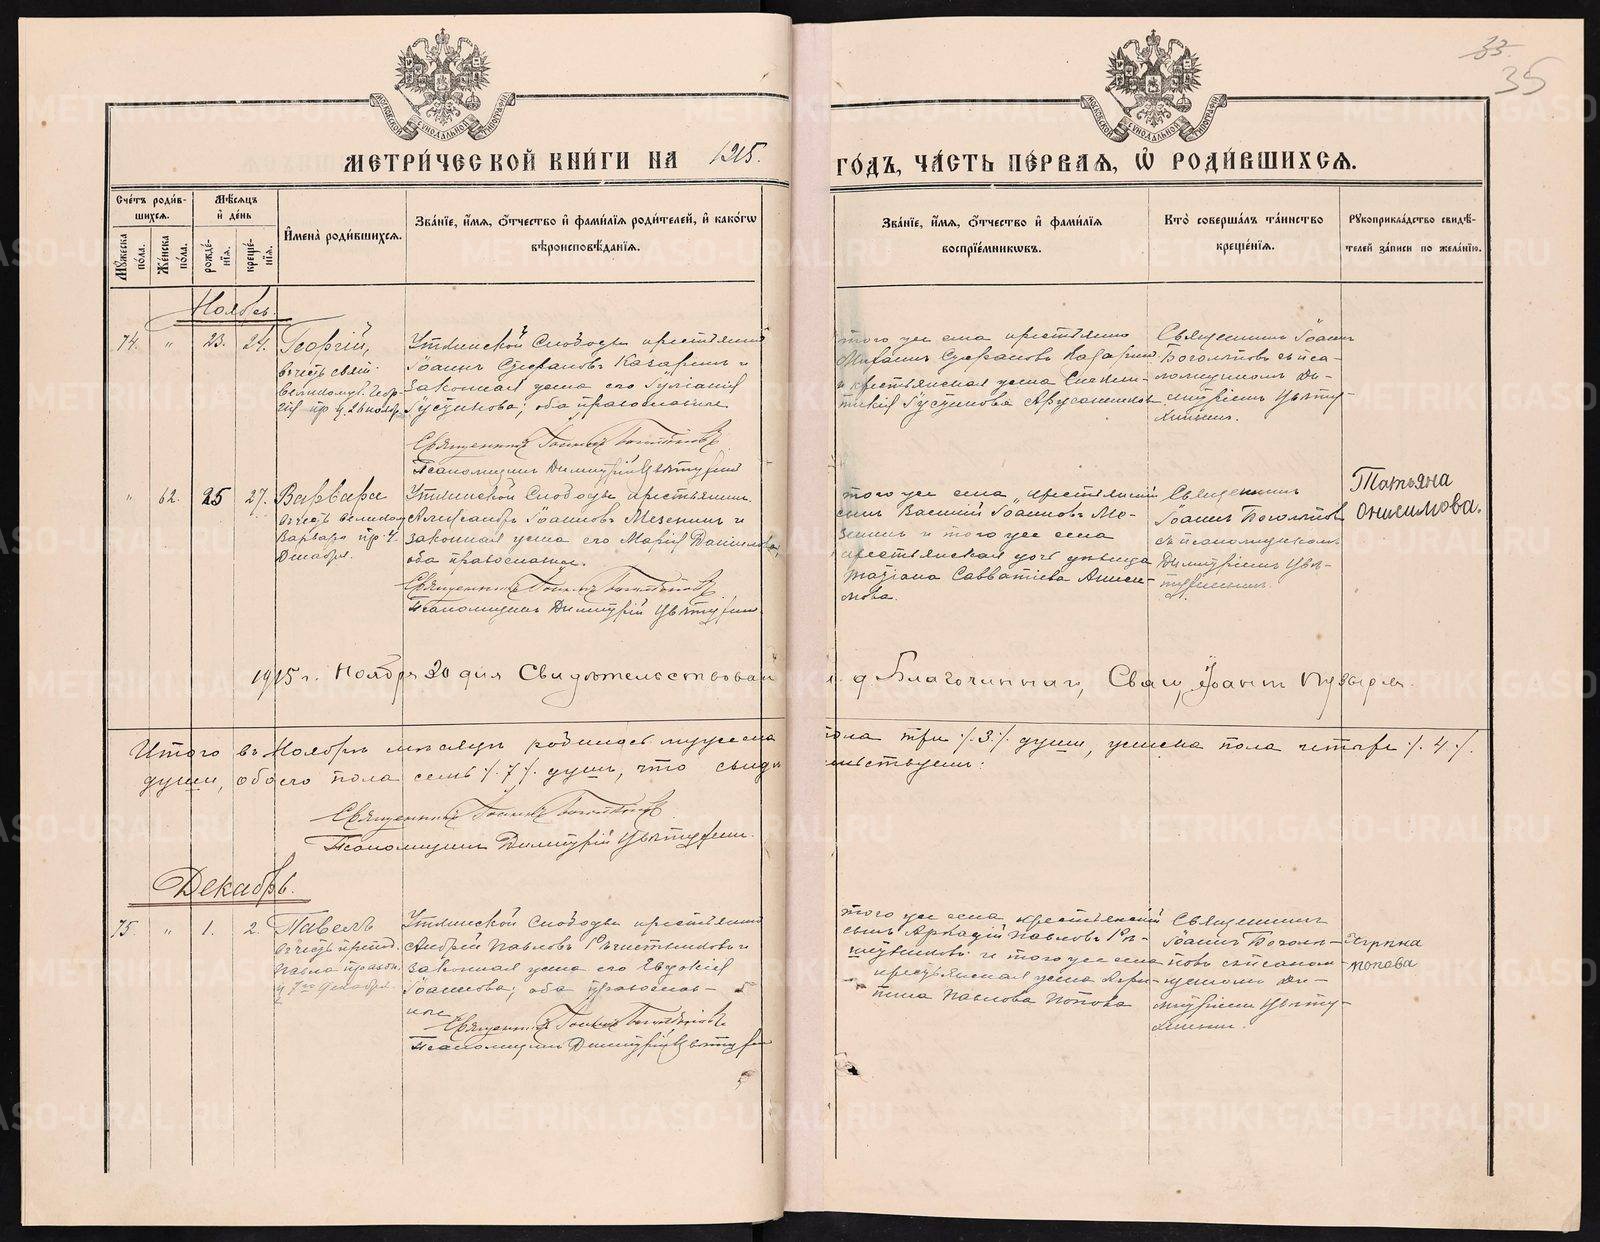 33.
35
МЕТРИ́ЧЕСКОЙ КНИ́ГИ НА 1915.
ГО́ДЪ, ЧА́СТЬ ПЕ́РВАѦ, Ѽ РОДИ́ВШИХСѦ.
Сче́тъ роди́вшихсѧ.
Мꙋ́жеска по́ла.
Же́нска по́ла.
Мѣ́сѧцъ и҆ де́нь
рожде́нїѧ.
креще́нїѧ.
И҆мена̀ роди́вшихсѧ.
Зва́нїе, и҆́мѧ, ѻ҆́тчество и҆ фами́лїѧ роди́телей, и҆ како́гѡ
вѣроисповѣ́данїѧ.
Зва́нїе, и҆́мѧ, ѻ҆́тчество и҆ фами́лїѧ
воспрїе́мникѡвъ.
Кто̀ соверша́лъ та́инство
креще́нїѧ.
Рꙋкоприкла́дство свидѣ́телей за́писи по жела́нїю.
Ноябрь.
74. " 23. 24.
Георгій,
въ честь свят.
великомуч. Георгія пр. ч. 26 ноябр.
Уткинской Слободы крестьянинъ
Іоаннъ Стефановъ Казаринъ и
законная жена его Іуліанія
Іустинова; оба православные
Священникъ Іоаннъ Боголѣповъ
Псаломщикъ Димитрій Цвѣтухинъ
того же села крестьянинъ
Михаилъ Стефановъ Казаринъ
и крестьянская жена
Іустинова
Священникъ Іоаннъ
Боголѣповъ съ псаломщикомъ Димитріемъ Цвѣтухинымъ.
" 62. 25 27.
Варвара
въ честь великом.
Варвары пр. 4
Декабря.
Уткинской Слободы крестьянинъ
Александръ Іоанновъ Мезенинъ и
законная жена его Марія Данилова,
оба православные.
Священникъ Іоаннъ Боголѣповъ
Псаломщикъ Димитрій Цвѣтухинъ
того же села крестьянскій
сынъ Василій Іоанновъ Мезенинъ и того же села
крестьянская дочь дѣвица
Татіана Савватіева Анисимова.
Священникъ
Іоаннъ Боголѣповъ
съ псаломщикомъ
Димитріемъ Цвѣтухинымъ.
Татьяна
Онисимова.
1915 г. Ноября 30 дня Свидѣтельствовалъ
Благочинный, Свящ. Іоаннъ Пузыревъ
Итого въ Ноябрѣ мѣсяцѣ родилось мужеска пола три /.3./ души, женска пола четыре /.4./.
души, обоего пола семь /.7./ душъ, что свидѣтельствуемъ:
Священникъ Іоаннъ Боголѣповъ
Псаломщикъ Димитрій Цвѣтухинъ.
Декабрь.
75. " 1. 2.
Павелъ
въ честь препод.
Павла
ч. 7го Декабря.
Уткинской Слободы крестьянинъ
Андрей Павловъ и
законная жена его Евдокія
Іоаннова; оба православные
Священникъ Іоаннъ Боголѣповъ
Псаломщикъ Димитрій Цвѣтухинъ
того же села крестьянскій
сынъ Аркадій Павловъ
и того же села
крестьянская жена
Павлова Попова
Священникъ
Іоаннъ Боголѣповъ съ псаломщикомъ Димитріемъ Цвѣтухинымъ.
попова